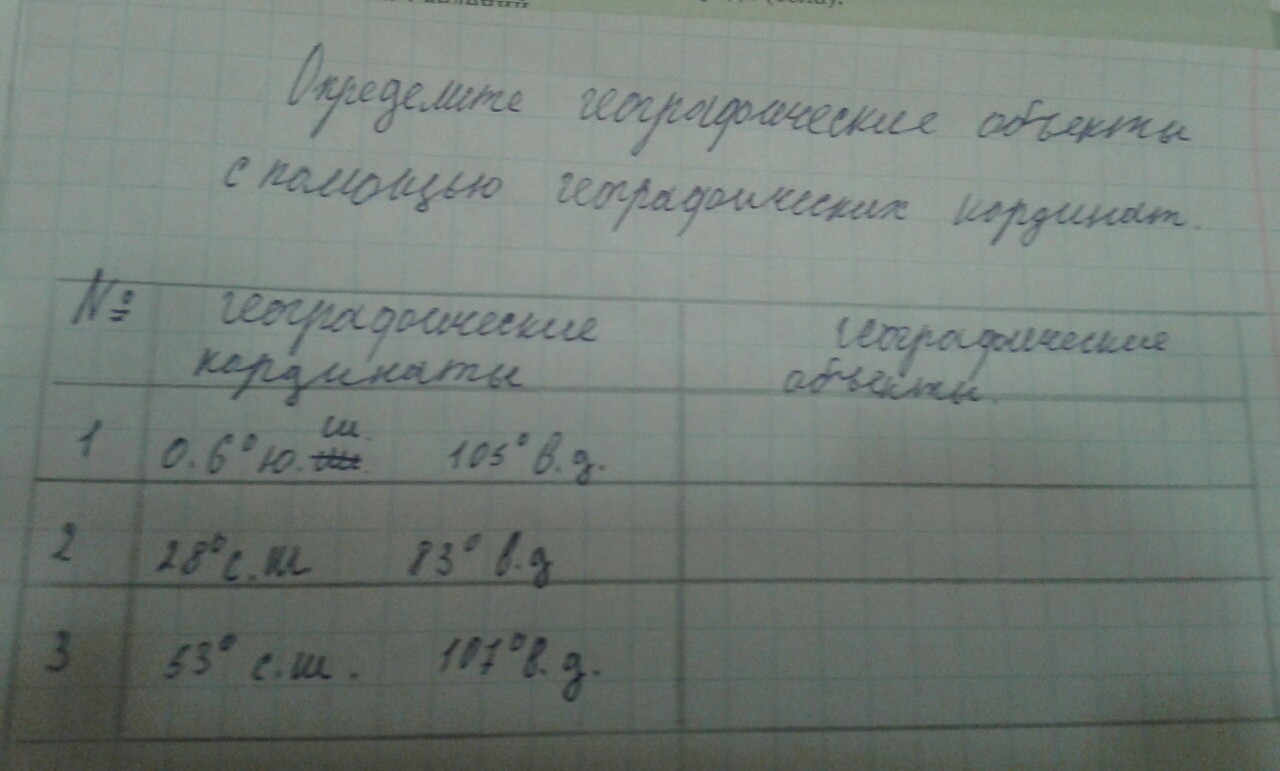 Определите географические объекты
с помощью географических кординат.
№ географические географические
кординаты объекты.
1 0.6° ю.ш. 105° в.д.
2 28° с.ш 83° в.д
3 53° с.ш. 107° в.д.